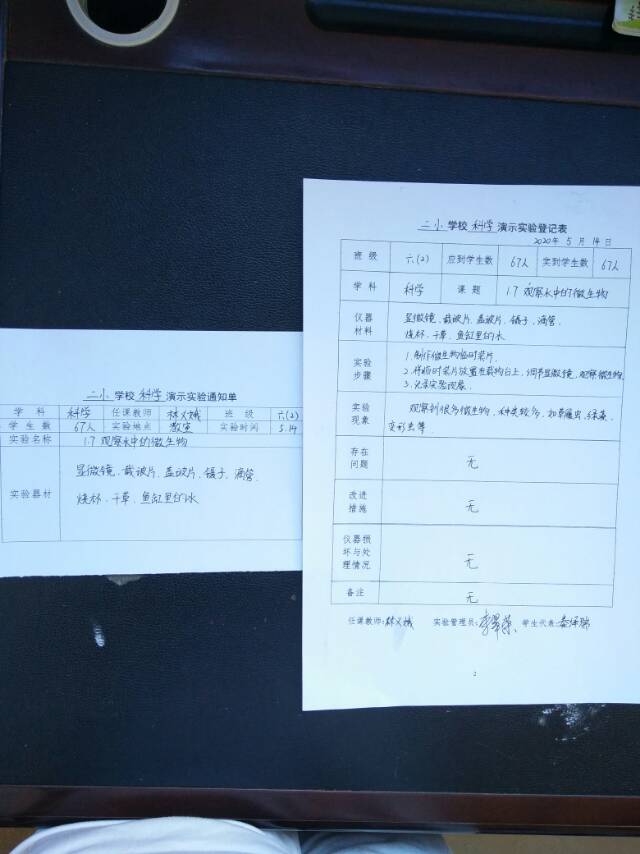 二小 学校 科学 演示实验通知单
学 科 科学 任课教师 林义娥 班 级 六(2)
学 生 数 67人 实验地点 教室 实验时间 5.14
实验名称 1.7 观察水中的微生物
实验器材 显微镜、载玻片、盖玻片、镊子、滴管、
烧杯、干草、鱼缸里的水
二小 学校 科学 演示实验登记表
2020年 5 月 14 日
班 级 六(2) 应到学生数 67人 实到学生数 67人
学 科 科学 课 题 1.7 观察水中的微生物
仪器材料 显微镜、载玻片、盖玻片、镊子、滴管、
烧杯、干草、鱼缸里的水
实验步骤 1.制作微生物临时装片.
2.将临时装片放置在载物台上,调节显微镜,观察微生物.
3.记录实验现象.
实验现象 观察到很多微生物,种类较多,如草履虫、绿藻、
变形虫等
存在问题 无
改进措施 无
仪器损坏与处理情况 无
备注 无
任课教师:林义娥 实验管理员: 学生代表:
2